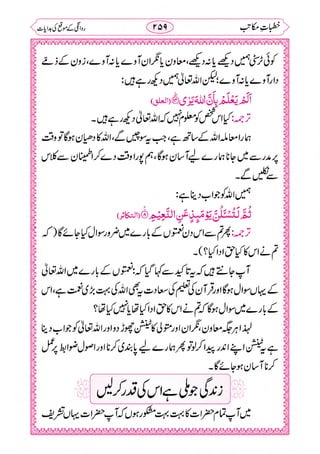 خطباتِ مکاتب ۲۵۹ روانگی کے موقع کی ہدایات
کوئی سُرتی ہمیں دیکھے یا نہ دیکھے، معاون یا نگران آوے یا نہ آوے، زون کے ذمے
دار آوے یا نہ آوے؛ لیکن! اللہ تعالیٰ ہمیں دیکھ رہے ہیں:
اَلَمْ یَعْلَمْ بِاَنَّ اللہَ یَرٰی ﴿۱۴﴾ (العلق)
ترجمہ: کیا اس شخص کو معلوم نہیں کہ اللہ تعالیٰ دیکھ رہے ہیں۔
ہمارا معاملہ اللہ کے ساتھ ہے، جب یہ سوچیں گے، اللہ کا دھیان ہوگا تو وقت
پر مدرسے میں جانا ہمارے لیے آسان ہوگا، ہم پورا وقت دے کر اطمینان سے کلاس
سے نکلیں گے۔
ہمیں اللہ کو جواب دینا ہے:
ثُمَّ لَتُسْئَلُنَّ یَوْمَئِذٍ عَنِ النَّعِیْمِ ﴿۸﴾ (التکاثر)
ترجمہ: پھر تم سے اس دن نعمتوں کے بارے میں ضرور سوال کیا جائے گا (کہ
تم نے اس کا کیا حق ادا کیا؟)۔
آپ جانتے ہیں کہ تاکید سے کہا گیا کہ: نعمتوں کے بارے میں اللہ تعالیٰ
کے یہاں سوال ہوگا اور قرآن کی تعلیم کی سعادت یہ بھی اللہ کی بہت بڑی نعمت ہے، اس
کے بارے میں سوال ہوگا کہ تم نے اس کا حق ادا کیا تھا یا نہیں کیا تھا؟
لہٰذا ہر جگہ معاون، نگران اور متولی کا ٹینشن چھوڑ دو اور اللہ تعالیٰ کو جواب دینا
ہے یہ ٹینشن اپنے اندر پیدا کر لو تو پھر ہمارے لیے پابندی کرنا اور اصول و ضوابط پر عمل
کرنا آسان ہو جائے گا۔
زندگی جو ملی ہے اس کی قدر کر لیں
میں آپ تمام حضرات کا بہت بہت مشکور ہوں کہ آپ حضرات یہاں تشریف